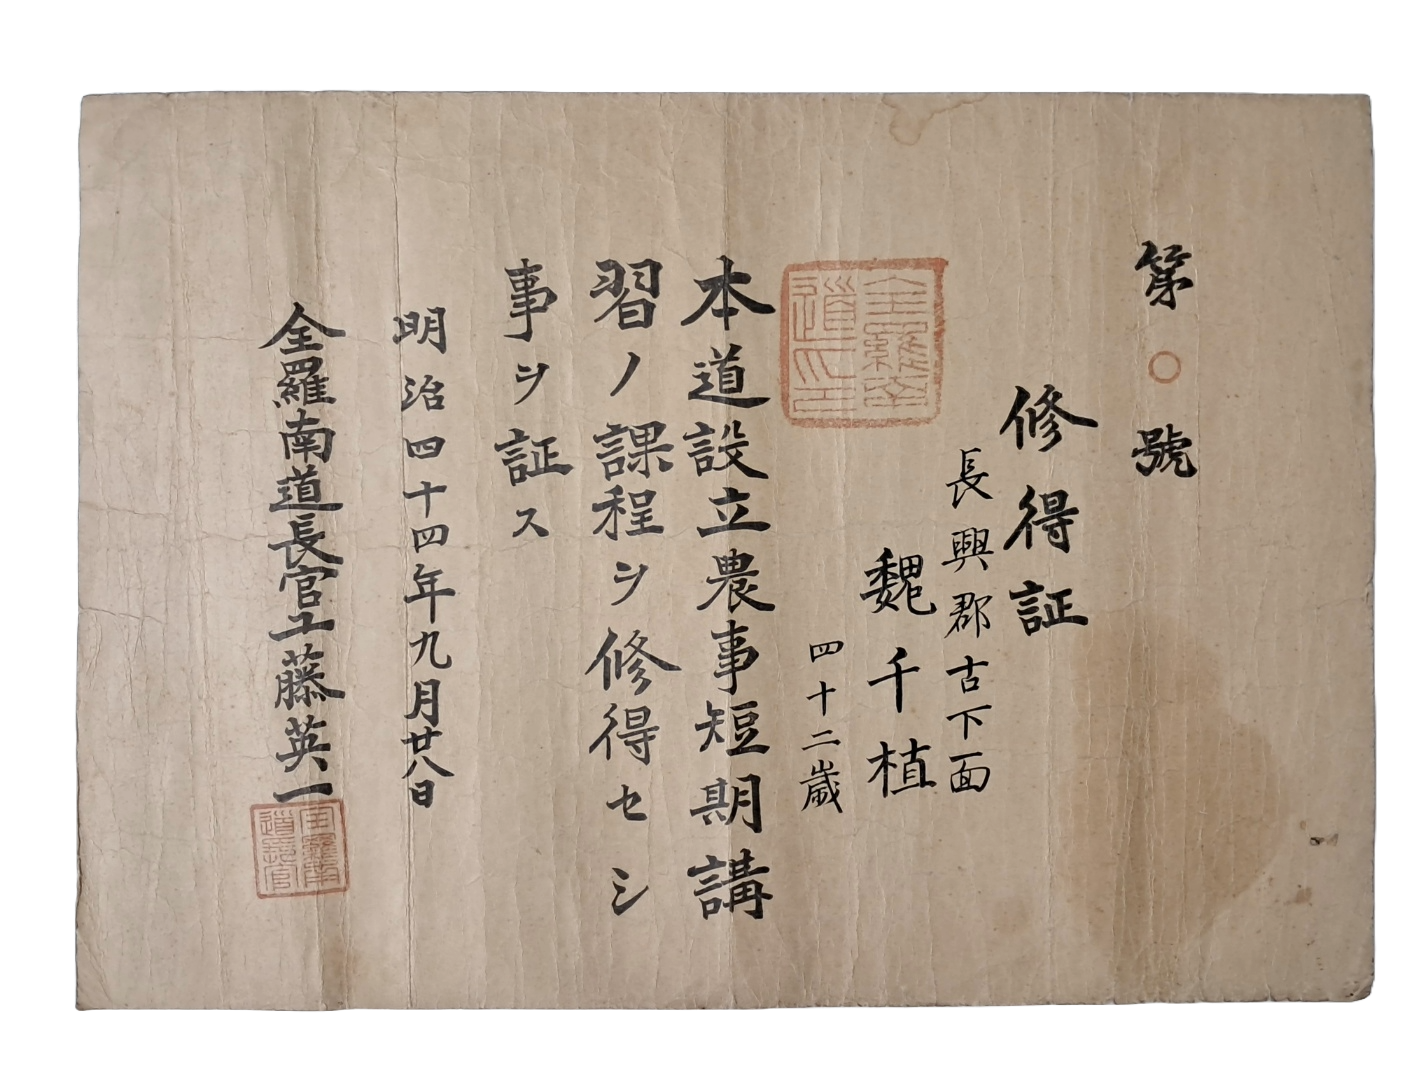 第○號
修得証
長興郡古下面
魏千植
四十二歳
全羅南道印
本道設立農事短期講
習ノ課程ヲ修得セシ
事ヲ証ス
明治四十四年九月廿八日
全羅南道長官工藤英一
全羅南道長官